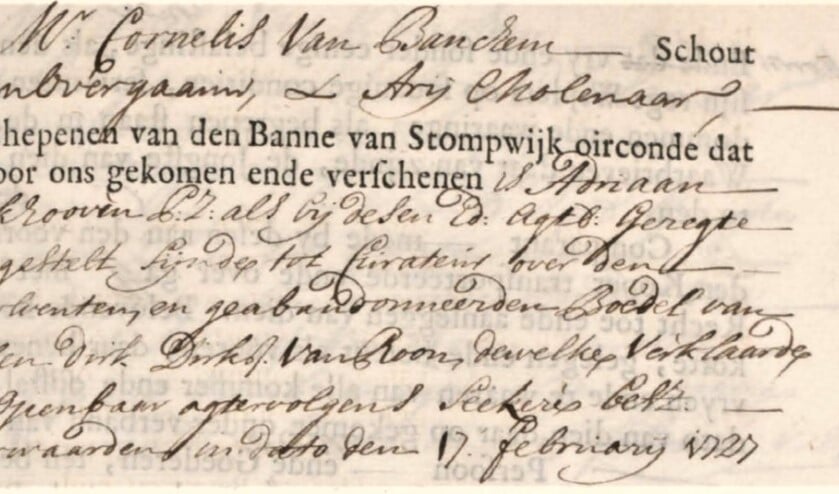 Mr. Cornelis Van Banchem — Schout
Overgaauw, & Arij Molenaar,
hepenen van den Banne van Stompwijk oirconde dat
oor ons gekomen ende verschenen is Adriaan
P:Z: als bij desen Ed: Agtb: Geregte
gestelt sijnde tot Curateur over den
en geabandonneerden Boedel van
en Dirk Dirks: van Roon, dewelke verklaarde
openbaar agtervolgens seekere
waarden in dato den 17. february 1727